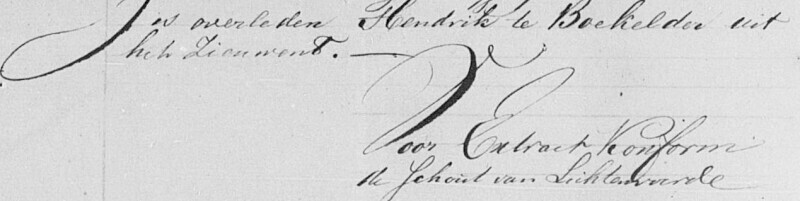 is overleden Hendrik te Boekelder uit
het Zieuwent. —
Voor Extract Konform
de Schout van Lichtenvoorde